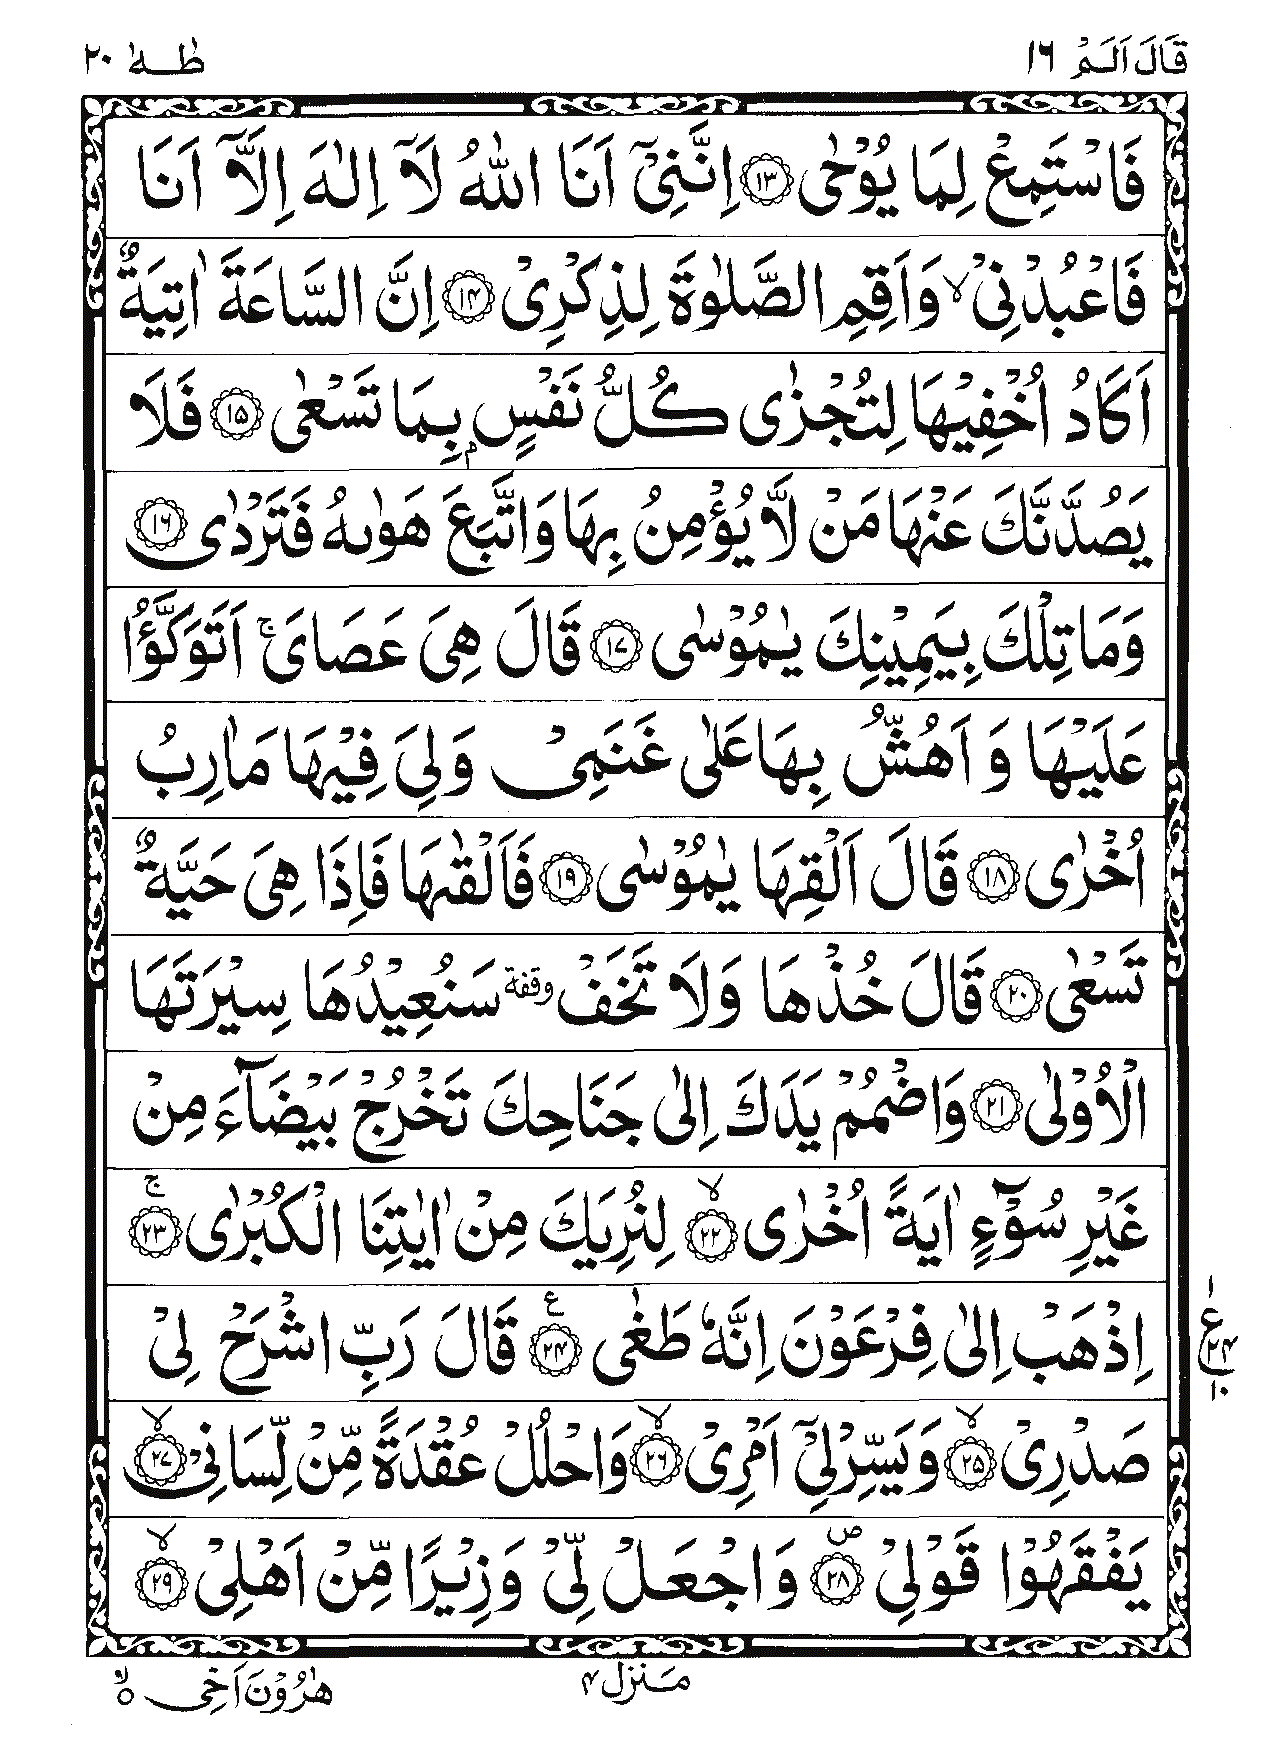 قَالَ اَلَمْ ١٦ طٰهٰ ٢٠
فَاسْتَمِعْ لِمَا يُوْحٰى ١٣ اِنَّنِيْٓ اَنَا اللّٰهُ لَآ اِلٰهَ اِلَّآ اَنَا
فَاعْبُدْنِيْ ۙ وَاَقِمِ الصَّلٰوةَ لِذِكْرِيْ ١٤ اِنَّ السَّاعَةَ اٰتِيَةٌ
اَكَادُ اُخْفِيْهَا لِتُجْزٰى كُلُّ نَفْسٍۢ بِمَا تَسْعٰى ١٥ فَلَا
يَصُدَّنَّكَ عَنْهَا مَنْ لَّا يُؤْمِنُ بِهَا وَاتَّبَعَ هَوٰىهُ فَتَرْدٰى ١٦
وَمَا تِلْكَ بِيَمِيْنِكَ يٰمُوْسٰى ١٧ قَالَ هِيَ عَصَايَ ۚ اَتَوَكَّؤُا
عَلَيْهَا وَ اَهُشُّ بِهَا عَلٰى غَنَمِيْ وَلِيَ فِيْهَا مَاٰرِبُ
اُخْرٰى ١٨ قَالَ اَلْقِهَا يٰمُوْسٰى ١٩ فَاَلْقٰىهَا فَاِذَا هِيَ حَيَّةٌ
تَسْعٰى ٢٠ قَالَ خُذْهَا وَلَا تَخَفْ وقفة سَنُعِيْدُهَا سِيْرَتَهَا
الْاُوْلٰى ٢١ وَاضْمُمْ يَدَكَ اِلٰى جَنَاحِكَ تَخْرُجْ بَيْضَآءَ مِنْ
غَيْرِ سُوْٓءٍ اٰيَةً اُخْرٰى ۙ ٢٢ لِنُرِيَكَ مِنْ اٰيٰتِنَا الْكُبْرٰى ۚ ٢٣
اِذْهَبْ اِلٰى فِرْعَوْنَ اِنَّهٗ طَغٰى ع ٢٤ قَالَ رَبِّ اشْرَحْ لِيْ
١ ع ٢٤ ١٠
صَدْرِيْ ۙ ٢٥ وَيَسِّرْ لِيْٓ اَمْرِيْ ۙ ٢٦ وَاحْلُلْ عُقْدَةً مِّنْ لِّسَانِيْ ۙ ٢٧
يَفْقَهُوْا قَوْلِيْ ص ٢٨ وَاجْعَلْ لِّيْ وَزِيْرًا مِّنْ اَهْلِيْ ۙ ٢٩
مَنزل ٤ هٰرُوْنَ اَخِي ۙ ٥